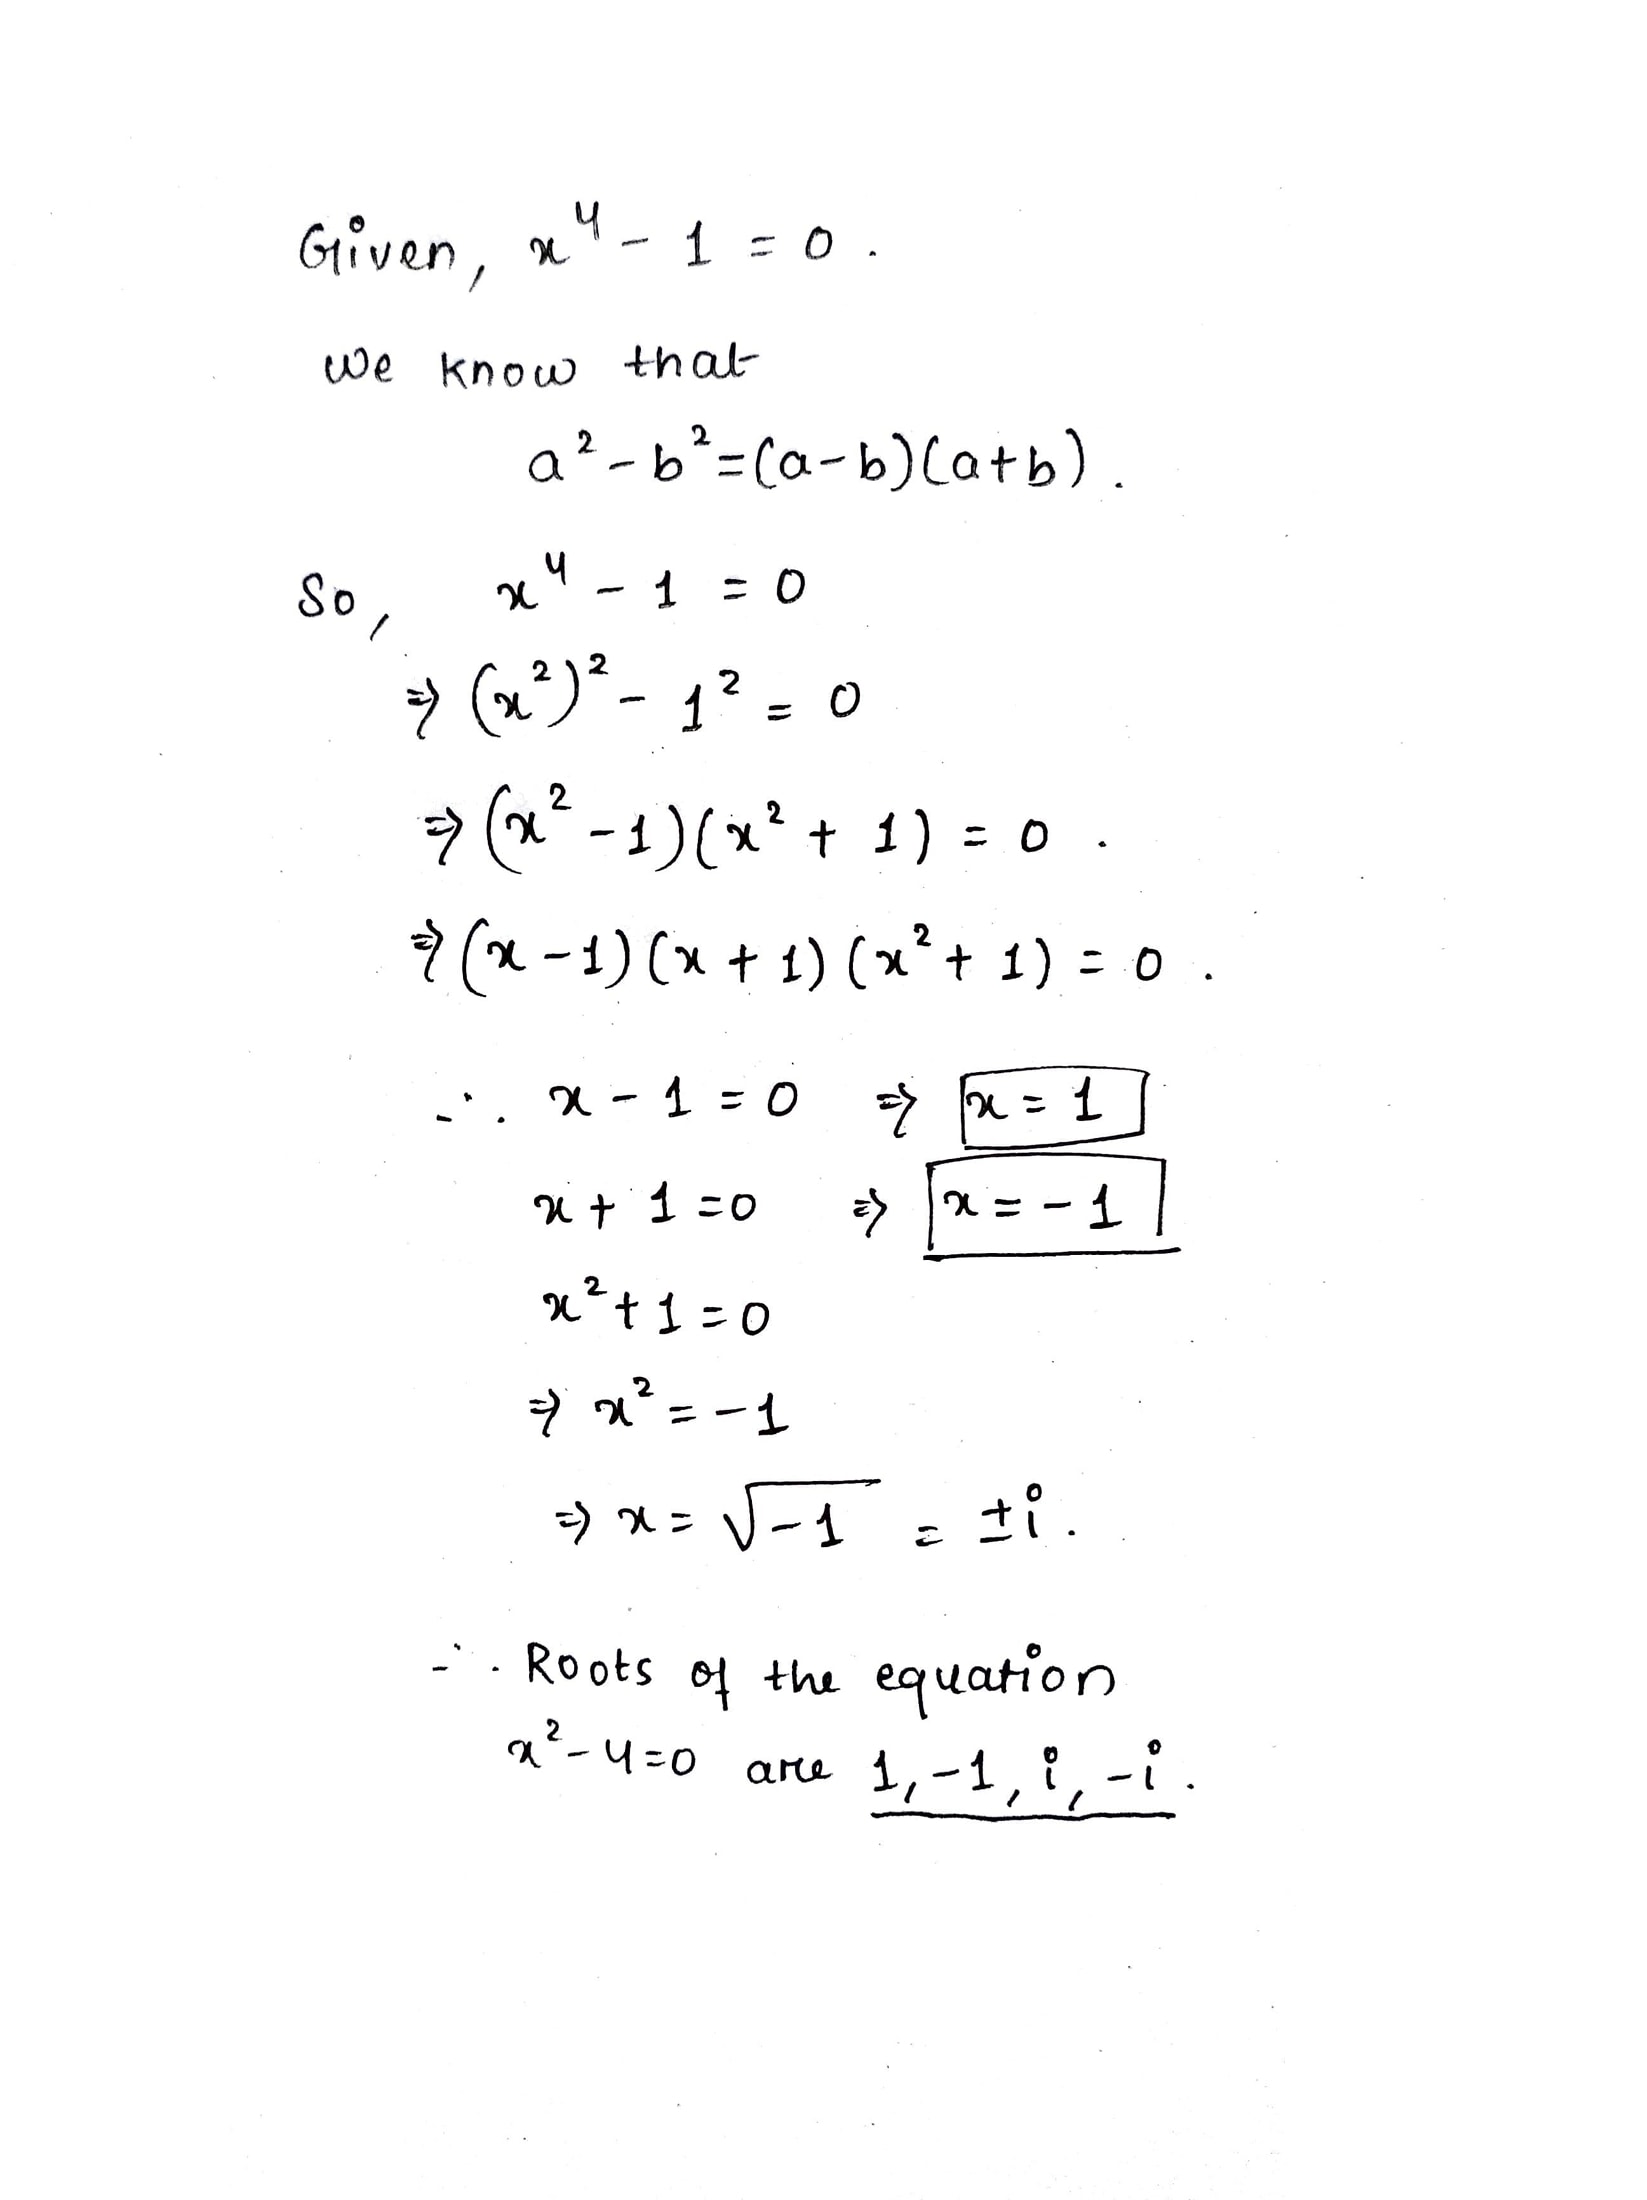 Given, x⁴ - 1 = 0 .
We know that
a² - b² = (a-b)(a+b) .
So, x⁴ - 1 = 0
⇒ (x²)² - 1² = 0
⇒ (x² - 1)(x² + 1) = 0 .
⇒ (x - 1)(x + 1)(x² + 1) = 0 .
∴ x - 1 = 0 ⇒ x = 1
x + 1 = 0 ⇒ x = - 1
x² + 1 = 0
⇒ x² = - 1
⇒ x = √-1 = ± i .
∴ Roots of the equation
x² - 4 = 0 are 1, -1, i, -i .